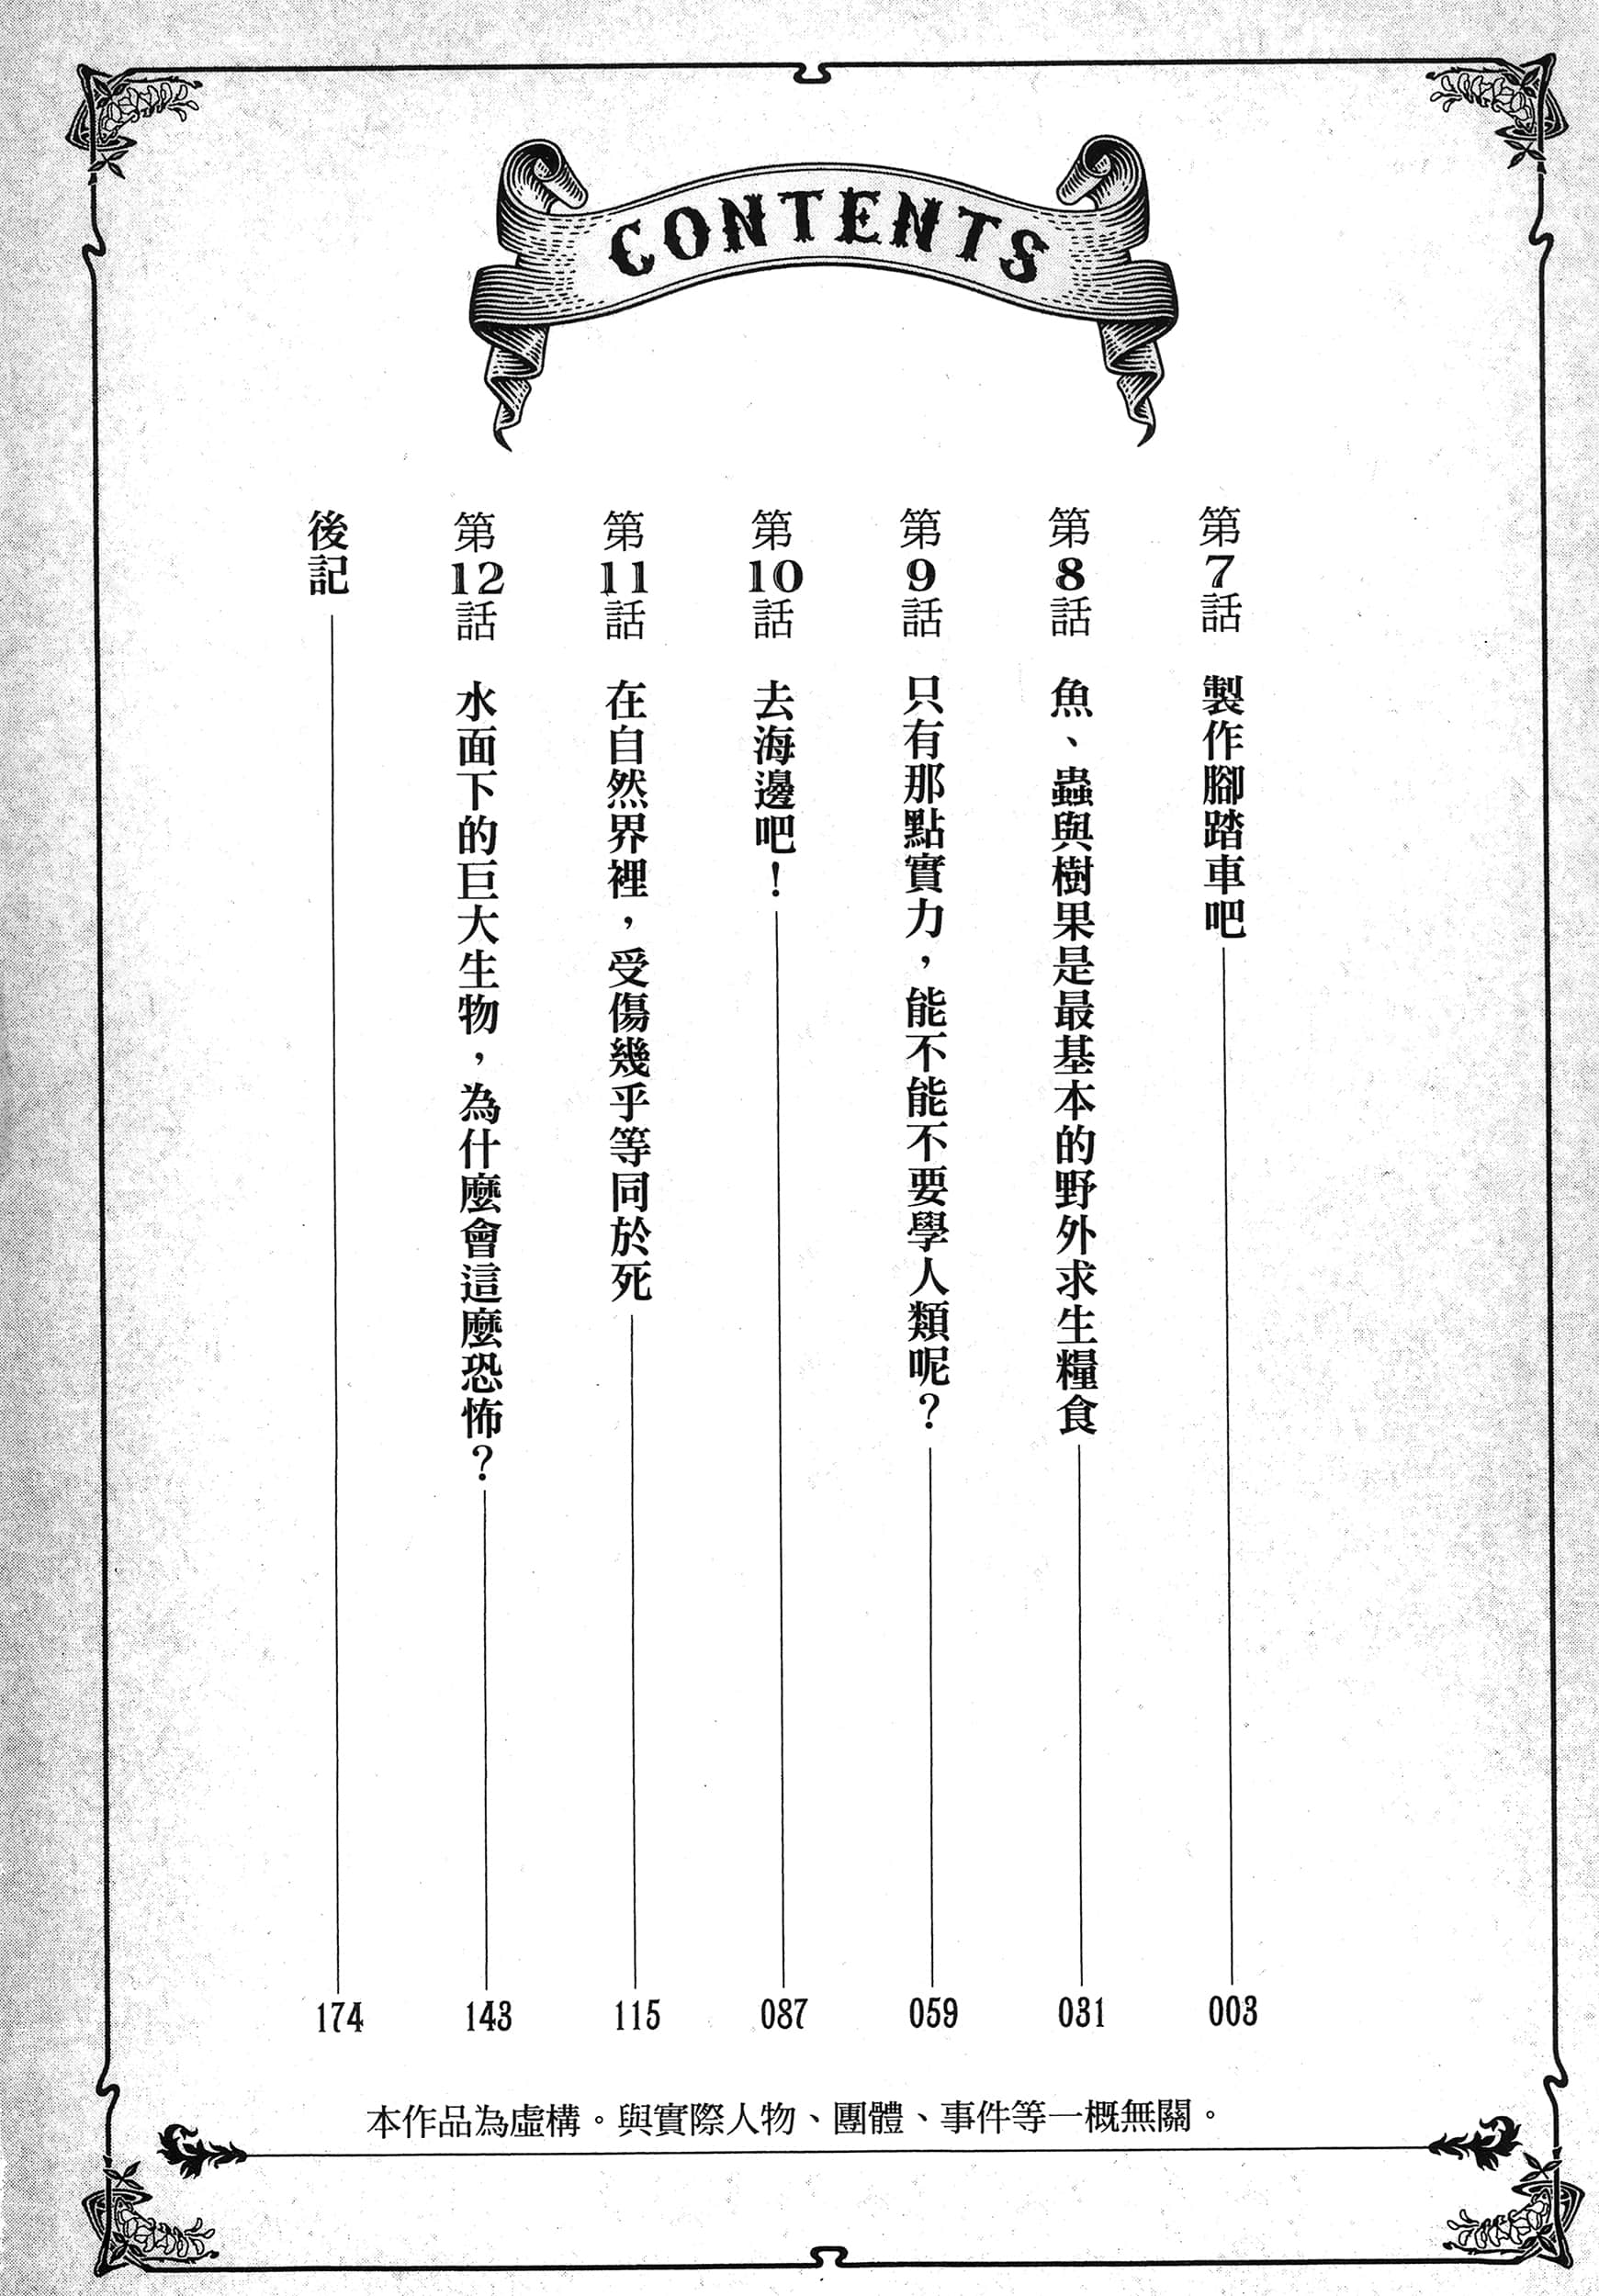 CONTENTS
第7話 製作腳踏車吧 003
第8話 魚、蟲與樹果是最基本的野外求生糧食 031
第9話 只有那點實力，能不能不要學人類呢？ 059
第10話 去海邊吧！ 087
第11話 在自然界裡，受傷幾乎等同於死 115
第12話 水面下的巨大生物，為什麼會這麼恐怖？ 143
後記 174
本作品為虛構。與實際人物、團體、事件等一概無關。